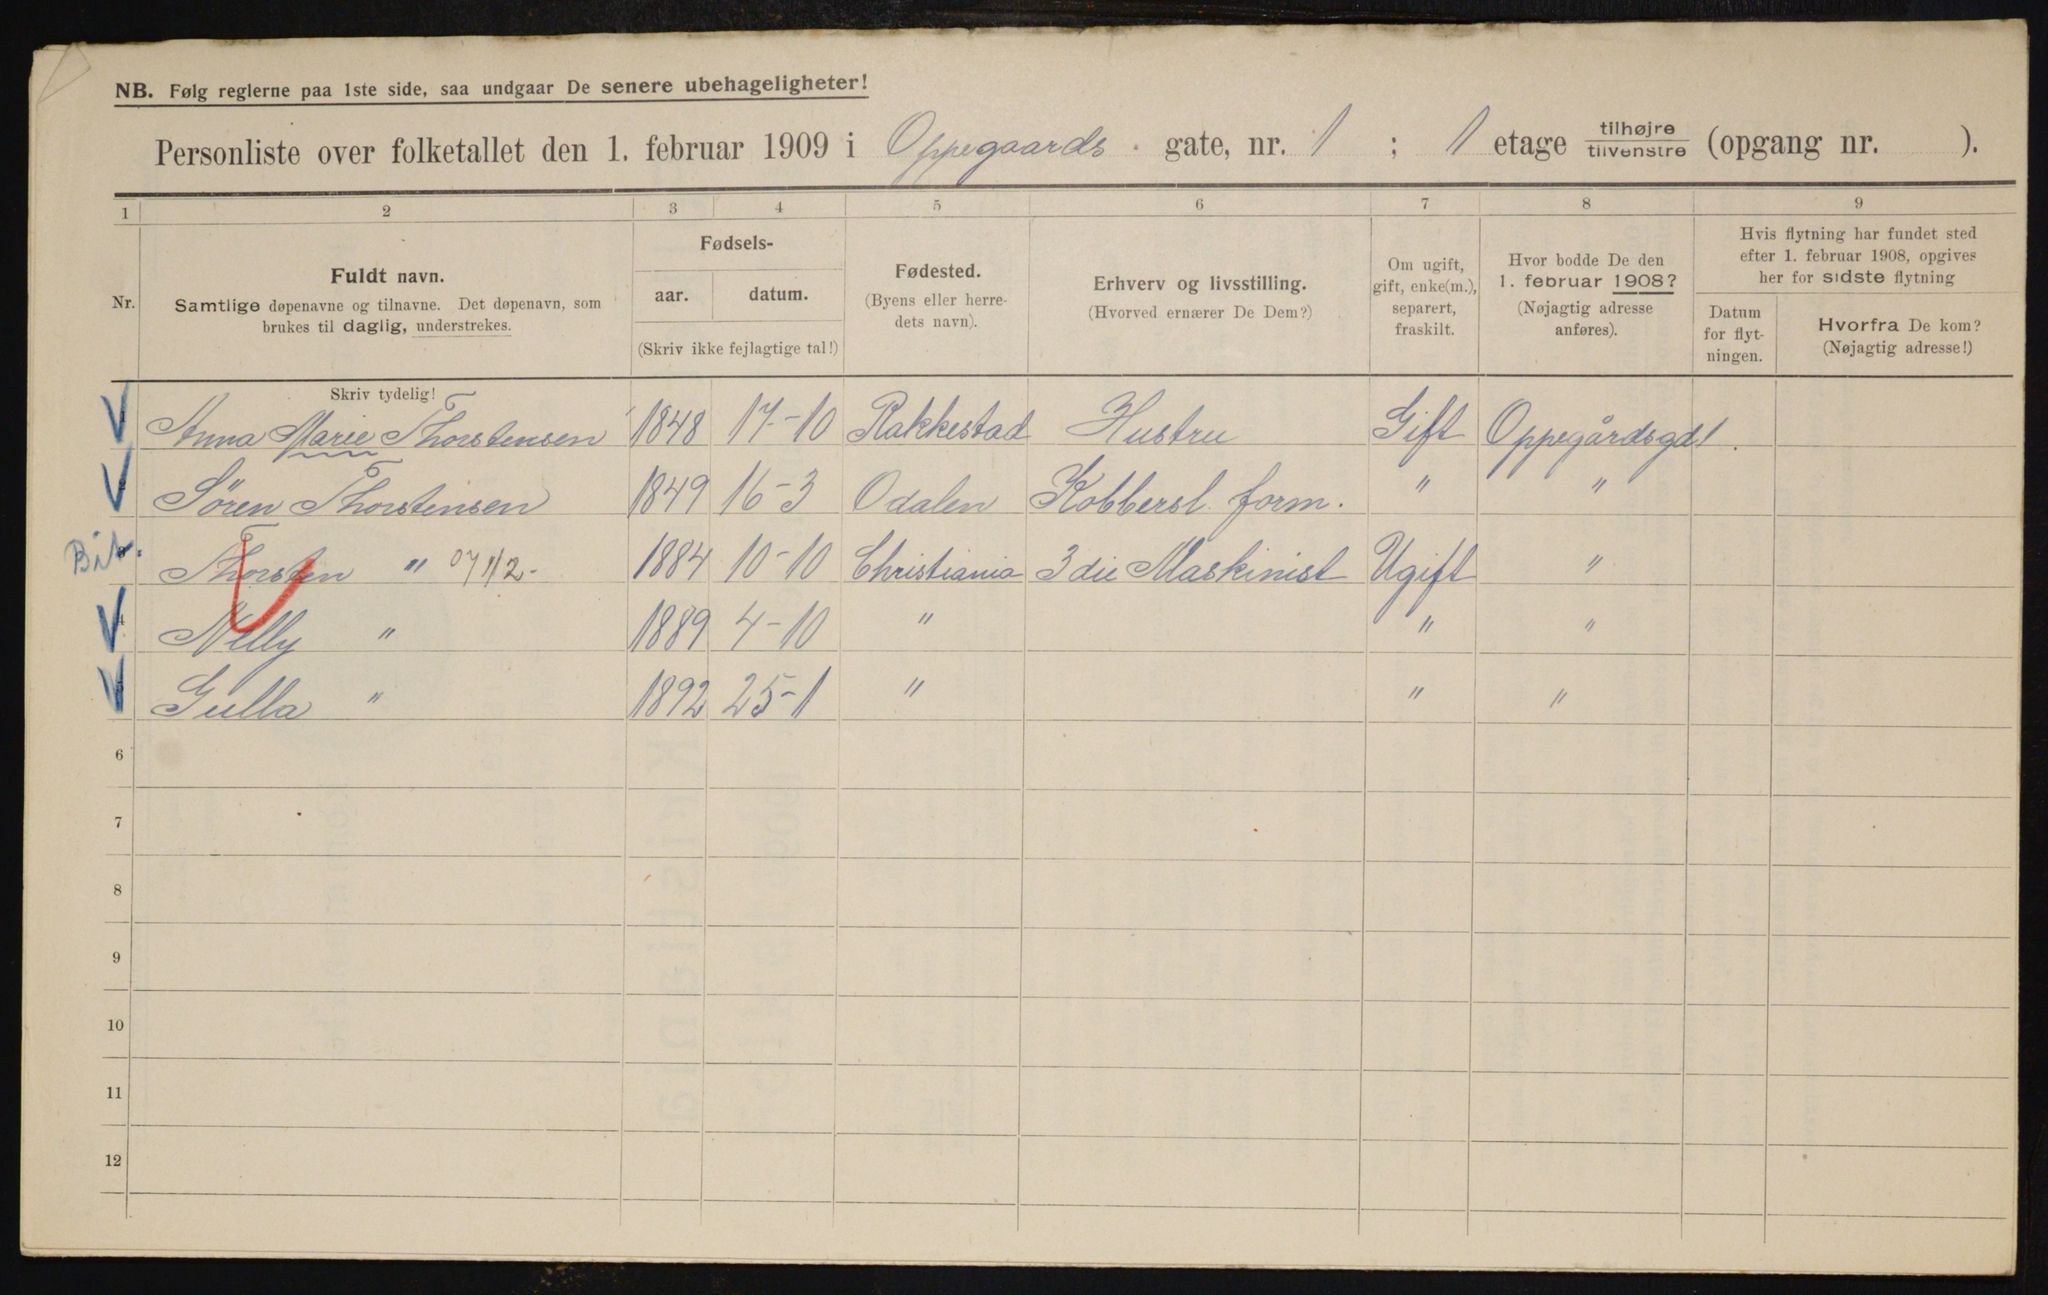 NB. Følg reglerne paa 1ste side, saa undgaar De senere ubehageligheter!
Personliste over folketallet den 1. februar 1909 i Oppegaards gate, nr. 1 ; 1 etage tilhøjre tilvenstre (opgang nr. ).
1 2 3 4 5 6 7 8 9
Nr.
Fuldt navn.
Samtlige døpenavne og tilnavne. Det døpenavn, som
brukes til daglig, understrekes.
Skriv tydelig!
Fødsels-
aar. datum.
(Skriv ikke fejlagtige tal!)
Fødested.
(Byens eller herre-
dets navn).
Erhverv og livsstilling.
(Hvorved ernærer De Dem?)
Om ugift,
gift, enke(m.),
separert,
fraskilt.
Hvor bodde De den
1. februar 1908?
(Nøjagtig adresse
anføres).
Hvis flytning har fundet sted
efter 1. februar 1908, opgives
her for sidste flytning
Datum
for flyt-
ningen.
Hvorfra De kom?
(Nøjagtig adresse!)
Anna Marie Thorstensen 1848 17-10 Rakkestad Hustru Gift Oppegårdsgd 1.
Sören Thorstensen 1849 16-3 Odalen Kobbersl. form. " "
3 Thorsten " 1884 10-10 Christiania 3die Maskinist Ugift "
4 Nelly " 1889 4-10 " " "
5 Gulla " 1892 25-1 " " "
6
7
8
9
10
11
12